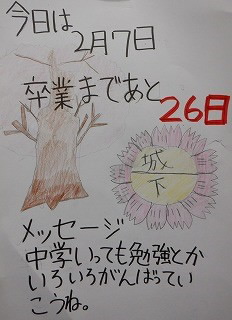 今日は
2月7日
卒業まであと
26日
城
下
メッセージ
中学いっても勉強とか
いろいろがんばってい
こうね。